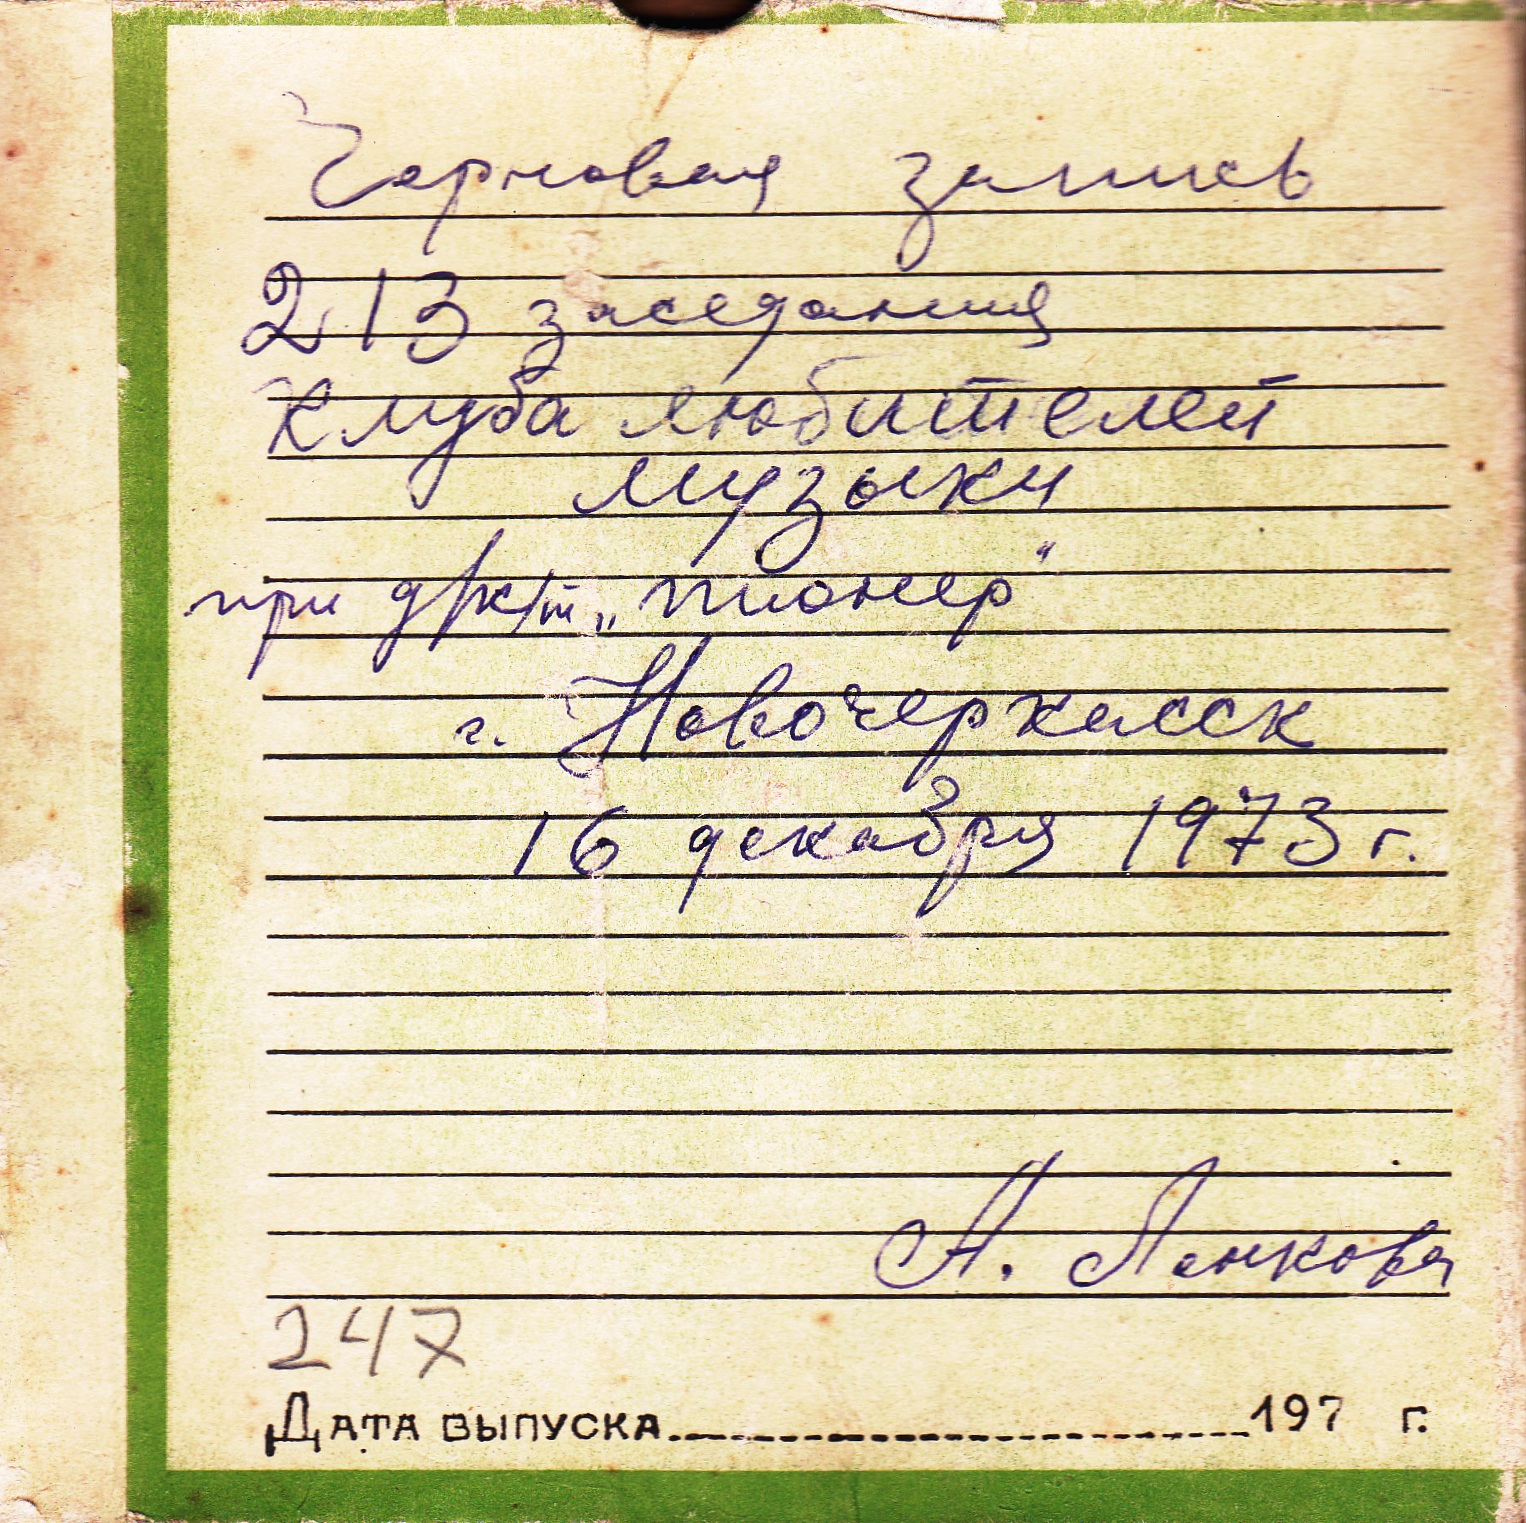 Черновая запись
213 заседания
клуба любителей
музыки
при д/к/т „Пионер“
г. Новочеркасск
16 декабря 1973 г.
А. Пенкова
247
Дата выпуска 197 г.